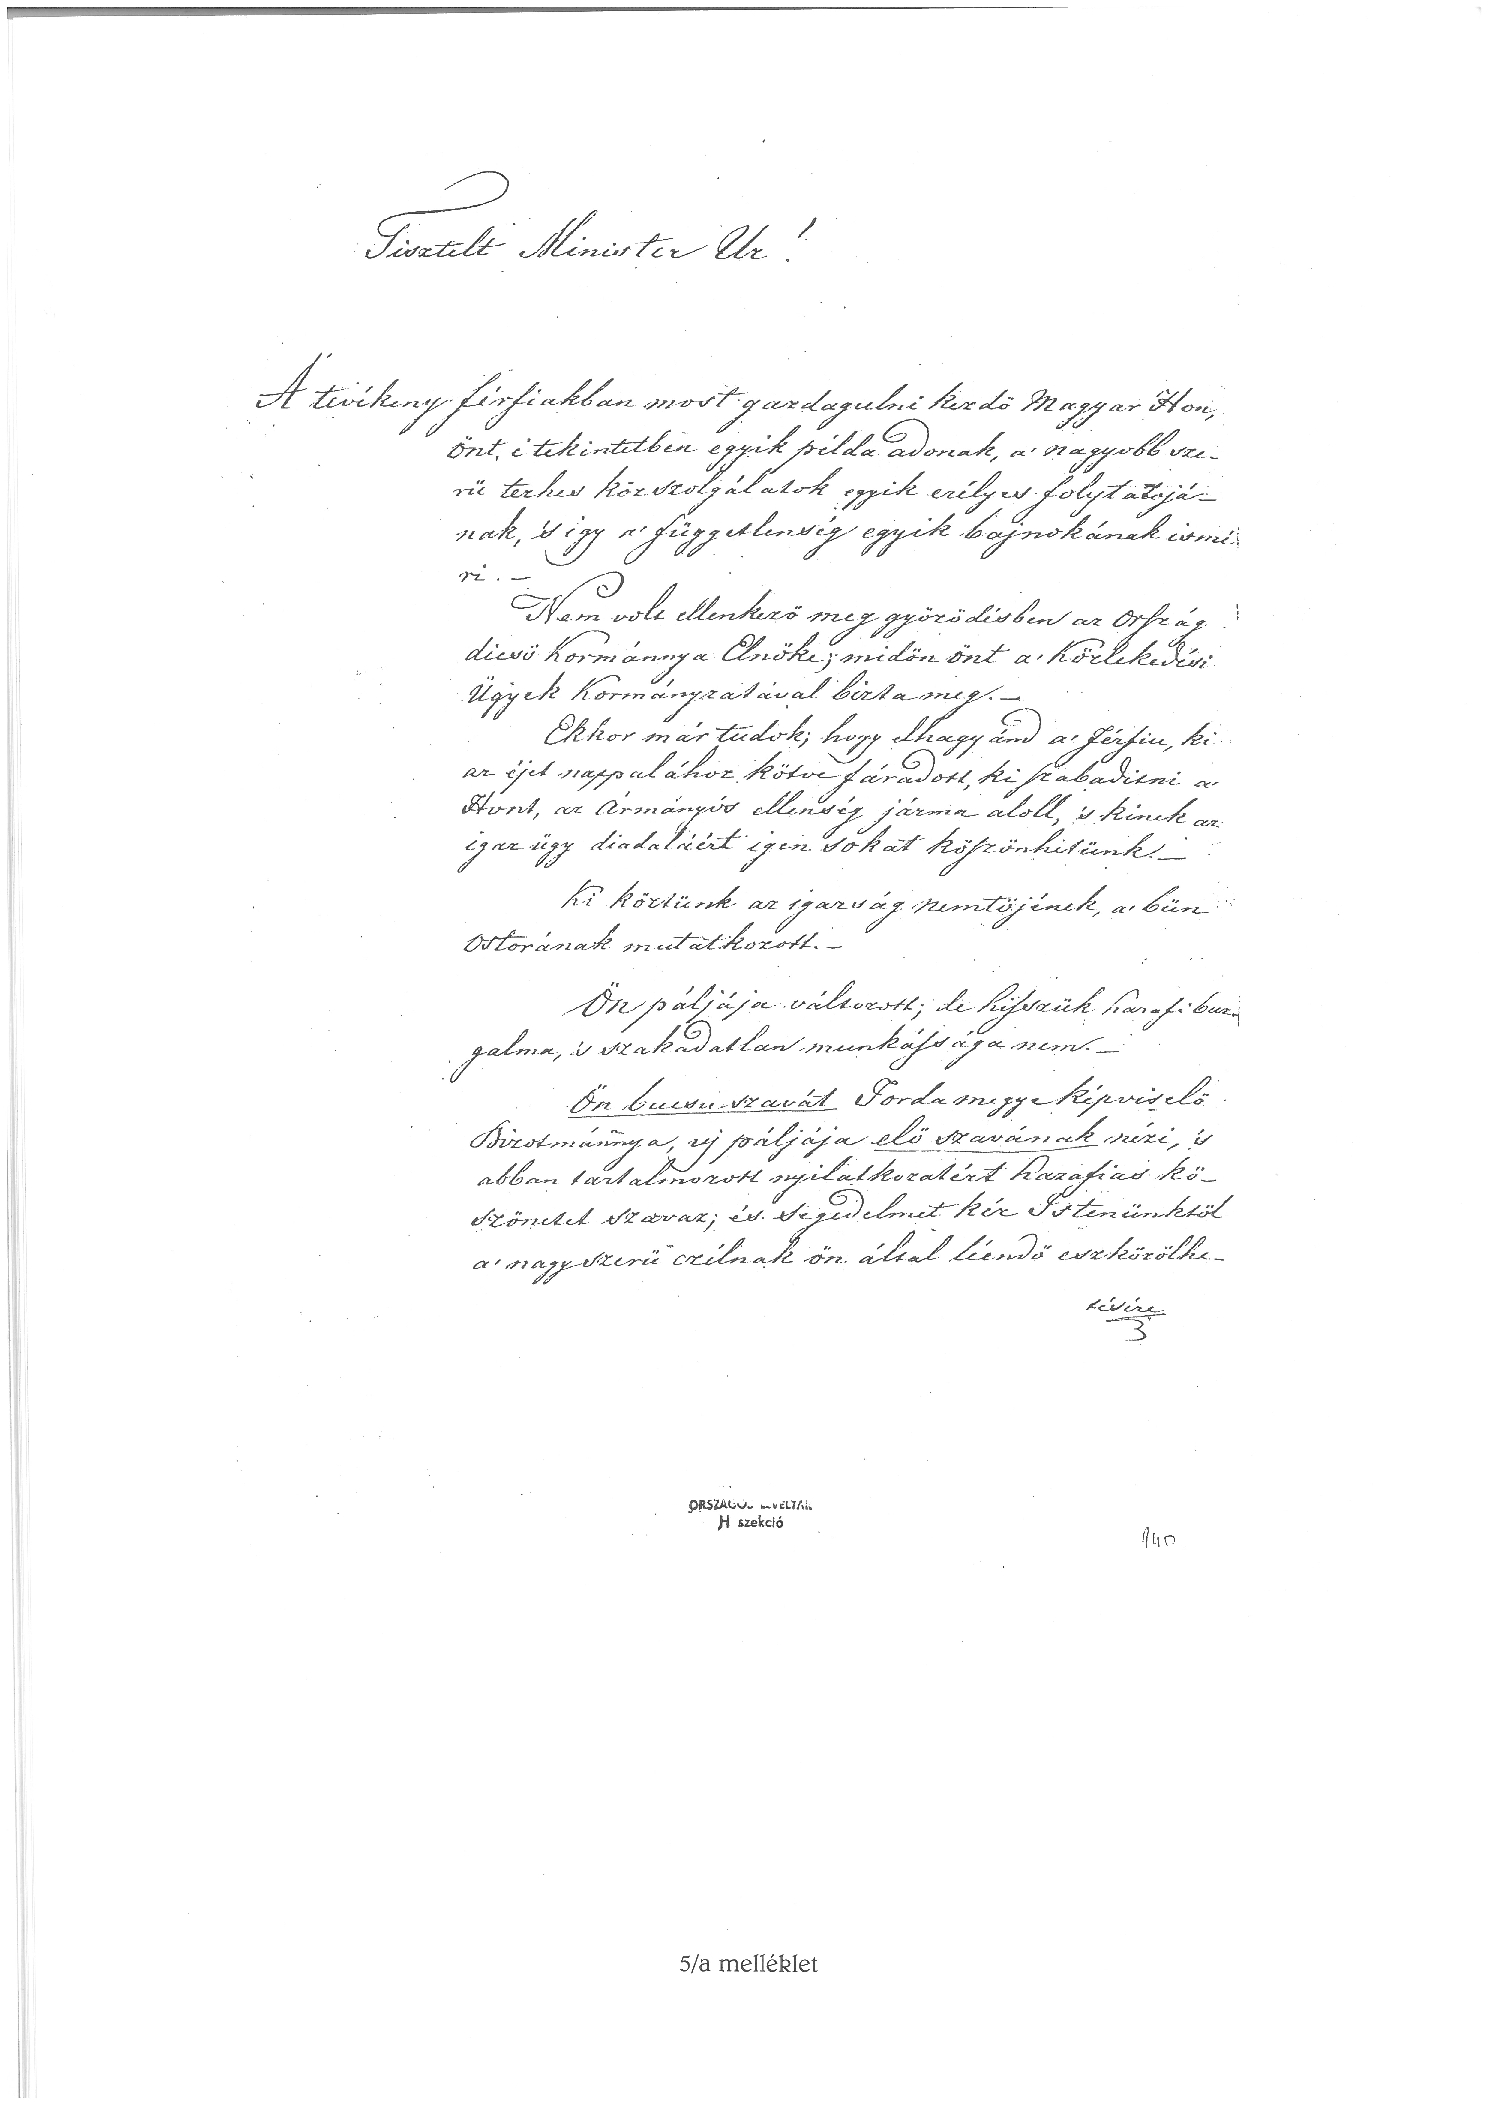 Tisztelt Minister Ur!
A tevékeny férfiakban most gazdagulni kezdö Magyar Hon,
önt, é tekintetben egyik példa adonak, a' nagyobb sze-
rü terhes közszolgálatok egyik erélyes folytatojá-
nak, 's igy a' függetlenség egyik bajnokának ismé-
ri. —
Nem volt ellenkezö meg gyözödésben az Ország
dicsö Kormánnya Elnöke; midön önt a' Közlekedési
Ügyek Kormányzatával bizta meg. —
Ekkor már tudok; hogy elhagyánd a' Férfiu, ki
az éjet nappalához kötve fáradott, ki szabaditni a'
Hont, az Ármányos ellenség járma aloll, 's kinek az
igaz ügy diadaláért igen sokat köszönhetünk! —
Ki köztünk az igazság nemtöjének, a' bün
Ostorának mutatkozott. —
Ön páljája változott; de hisszük hazafi buz-
galma, 's szakadatlan munkássága nem. —
Ön bucsu szavát Tordamegye képviselö
Bizotmánnya, uj páljája elö szavának nézi, 's
abban tartalmozott nyilatkozatért hazafias kö-
szönetet szavaz; és segedelmet kér Istenünktöl
a' nagyszerü czélnak ön által léendö eszközölhe-
tésére.
ORSZÁGOS LEVÉLTÁR
H szekció
140
5/a melléklet